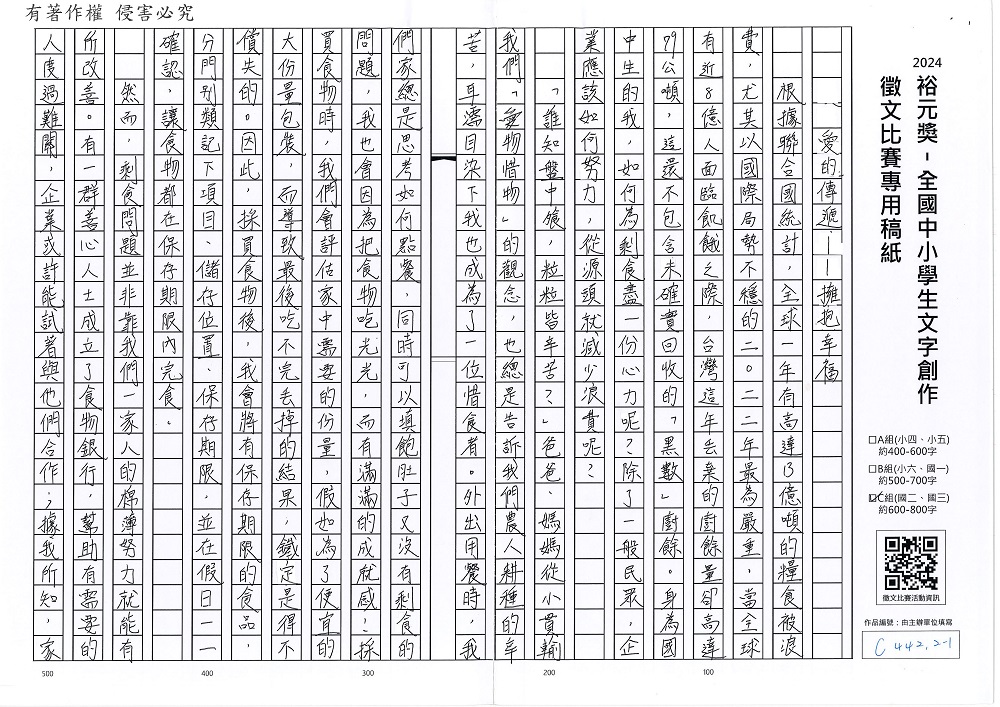 有著作權 侵害必究
2024
裕元獎-全國中小學生文字創作
徵文比賽專用稿紙
□A組(小四、小五)
約400-600字
□B組(小六、國一)
約500-700字
☑C組(國二、國三)
約600-800字
徵文比賽活動資訊
作品編號：由主辦單位填寫
C442.2-1
愛的傳遞——擁抱幸福
根據聯合國統計，全球一年有高達13億噸的糧食被浪
費，尤其以國際局勢不穩的二○二二年最為嚴重，當全球
有近8億人面臨飢餓之際，台灣這年丟棄的廚餘量卻高達
79公噸，這還不包含未確實回收的「黑數」廚餘。身為國
中生的我，如何為剩食盡一份心力呢？除了一般民眾，企
業應該如何努力，從源頭就減少浪費呢？
「誰知盤中飧，粒粒皆辛苦？」爸爸、媽媽從小貫輸
我們「愛物惜物」的觀念，也總是告訴我們農人耕種的辛
苦，耳濡目染下我也成為了一位惜食者。外出用餐時，我
們家總是思考如何點餐，同時可以填飽肚子又沒有剩食的
問題，我也會因為把食物吃光光，而有滿滿的成就感！採
買食物時，我們會評估家中需要的份量，假如為了便宜的
大份量包裝，而導致最後吃不完丟掉的結果，鐵定是得不
償失的。因此，採買食物後，我會將有保存期限的食品，
分門別類記下項目、儲存位置、保存期限，並在假日一一
確認，讓食物都在保存期限內完食。
然而，剩食問題並非靠我們一家人的棉薄努力就能有
所改善。有一群善心人士成立了食物銀行，幫助有需要的
人度過難關，企業或許能試著與他們合作；據我所知，家
100
200
300
400
500